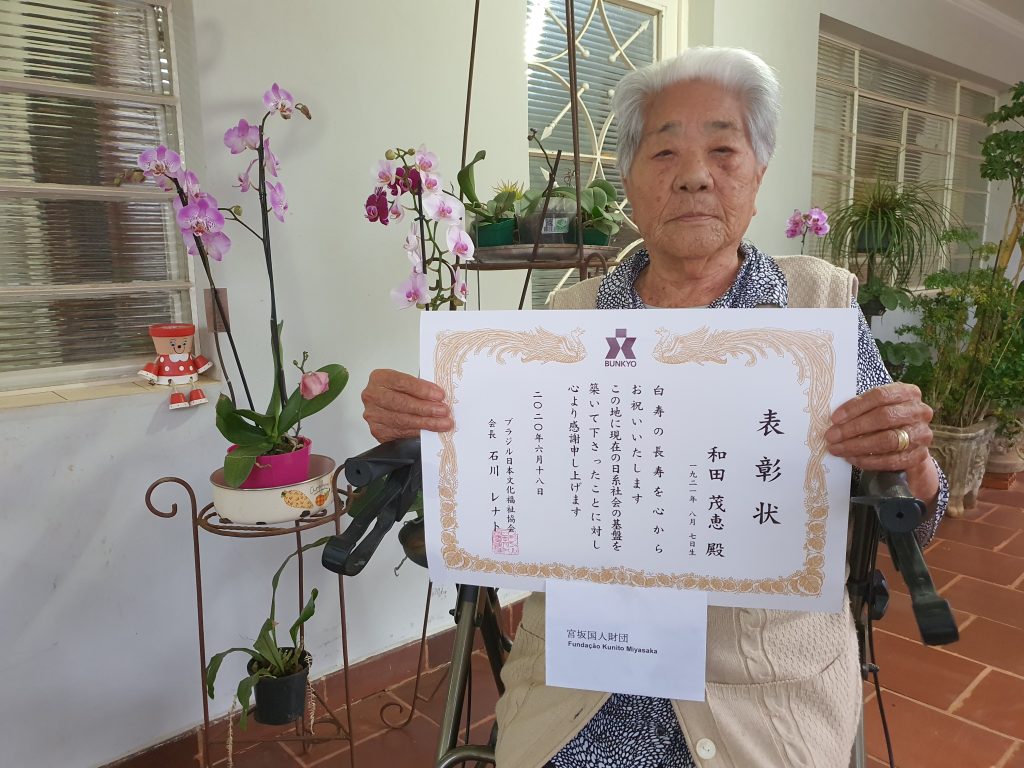 BUNKYO
表彰状
和田 茂恵 殿
一九二一年 八月 七日生
白寿の長寿を心から
お祝いいたします
この地に現在の日系社会の基盤を
築いて下さったことに対し
心より感謝申し上げます
二〇二〇年六月十八日
ブラジル日本文化福祉協会
会長 石川 レナト
宮坂国人財団
Fundação Kunito Miyasaka